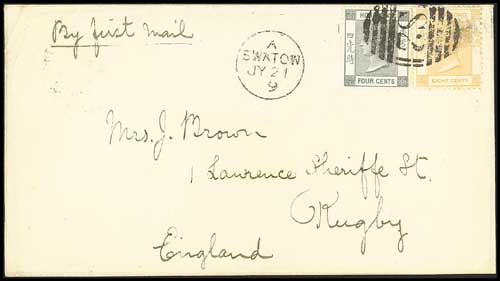 By first Mail
A
SWATOW
JY 21
9
HO
四先時
FOUR CENTS
EIGHT CENTS
Mrs. J. Brown
1 Laurence Sheriffe St.
Rugby
England